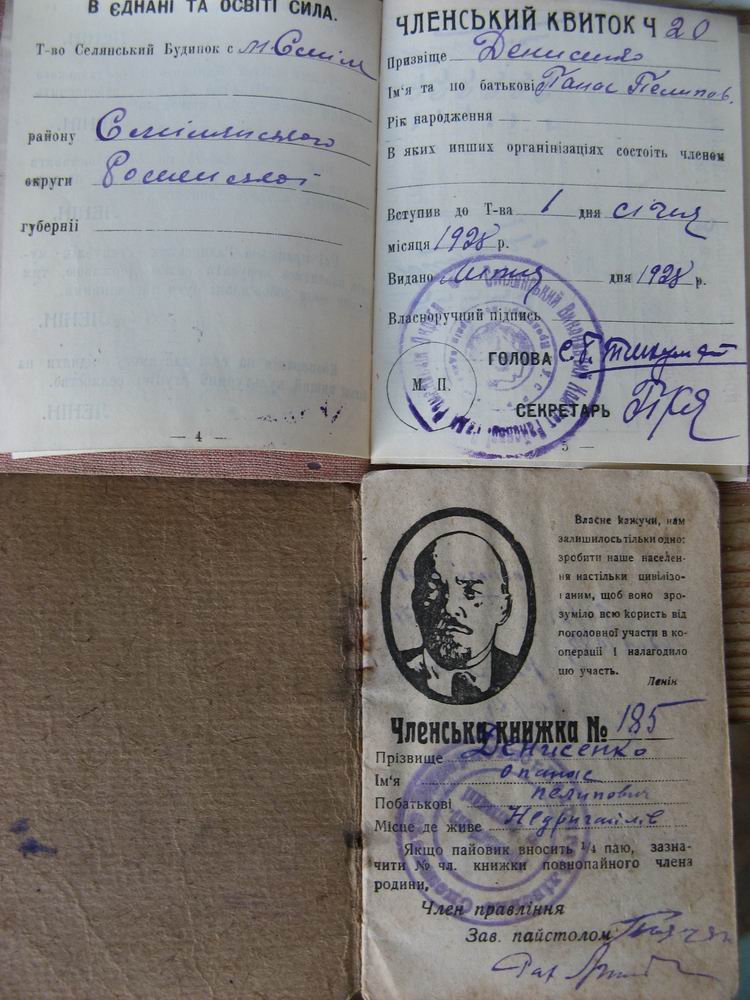 В ЄДНАНІ ТА ОСВІТІ СИЛА.
Т-во Селянський Будинок с
району
округи
губерніі
— 4 —
ЧЛЕНСЬКИЙ КВИТОК Ч 20
Призвіще Денисенко
Ім'я та по батькові Панас Пелипов.
Рік народження
В яких инших організіціях состоіть членом
Вступив до Т-ва 1 дня січня
місяця 1928 р.
Видано дня 1928 р.
Власноручний підпись
ГОЛОВА
М. П.
СЕКРЕТАРЬ
5 —
Власне кажучи, нам
залишилось тільки одно:
зробити наше населен-
ня настільки цивілізо-
ваним, щоб воно зро-
зуміло всю користь від
поголовної участи в ко-
операції і налагодило
цю участь.
Ленін
Членська книжка № 185
Прізвище Денисенко
Ім'я Опанас
Побатькові Пелипович
Місце де живе Недригайлів
Якщо пайовик вносить 1/4 паю, зазна-
чити № чл. книжки повнопайного члена
родини,
Член правління
Зав. пайстолом